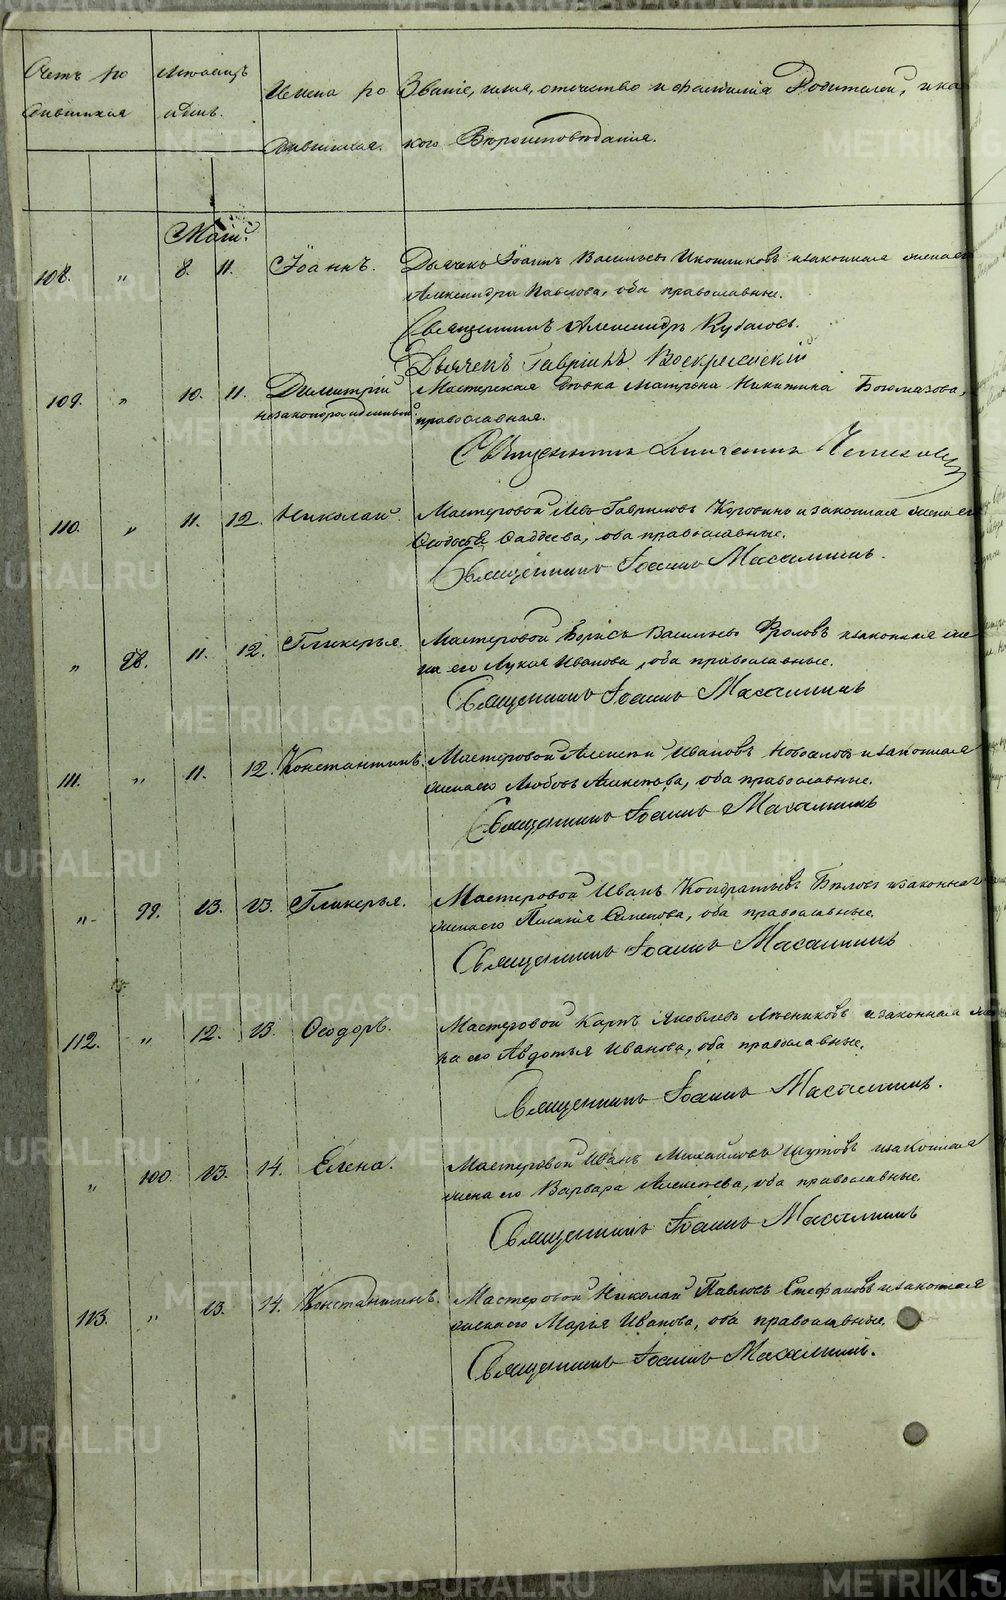 Счетъ ро Мѣсяцъ Имена ро Званіе, имя, отчество и фамилія Родителей, и ка
дившихся и день. дившихся. кого Вѣроисповѣданія.
Маій.
108. " 8. 11. Іоаннъ. Дьячекъ Іоаннъ Васильевъ Иконниковъ и законная жена его
Александра Павлова, оба православные.
Священникъ Александръ
Дьячекъ Гавріилъ Воскресенскій
109. " 10. 11. Димитрій Мастерская дѣвка Матрона Никитина Богомазова,
незаконнорожденный православная.
Священникъ
110. " 11. 12. Николай. Мастеровой Левъ Гавриловъ Коровинъ и законная жена его
Ѳеодосія Фаддеева, оба православные.
Священникъ Іоаннъ
" 98. 11. 12. Гликерья. Мастеровой Борисъ Васильевъ Фроловъ и законная же
на его Лукія Иванова, оба православные.
Священникъ Іоаннъ
111. " 11. 12. Константинъ. Мастеровой Алексѣй Ивановъ и законная
жена его Любовь Алексѣева, оба православные.
Священникъ Іоаннъ
" 99. 13. 13. Гликерья. Мастеровой Иванъ Кондратьевъ Бѣловъ и законная
жена его Пелагія Семенова, оба православные.
Священникъ Іоаннъ
112. " 12. 13. Ѳеодоръ. Мастеровой Карпъ Яковлевъ и законная же
на его Авдотья Иванова, оба православные.
Священникъ Іоаннъ
" 100. 13. 14. Елена. Мастеровой Иванъ Михайловъ Шутовъ и законная
жена его Варвара Алексѣева, оба православные.
Священникъ Іоаннъ
113. " 13. 14. Константинъ. Мастеровой Николай Павловъ Стефановъ и законная
жена его Марья Иванова, оба православные.
Священникъ Іоаннъ
METRIKI.GASO-URAL.RU